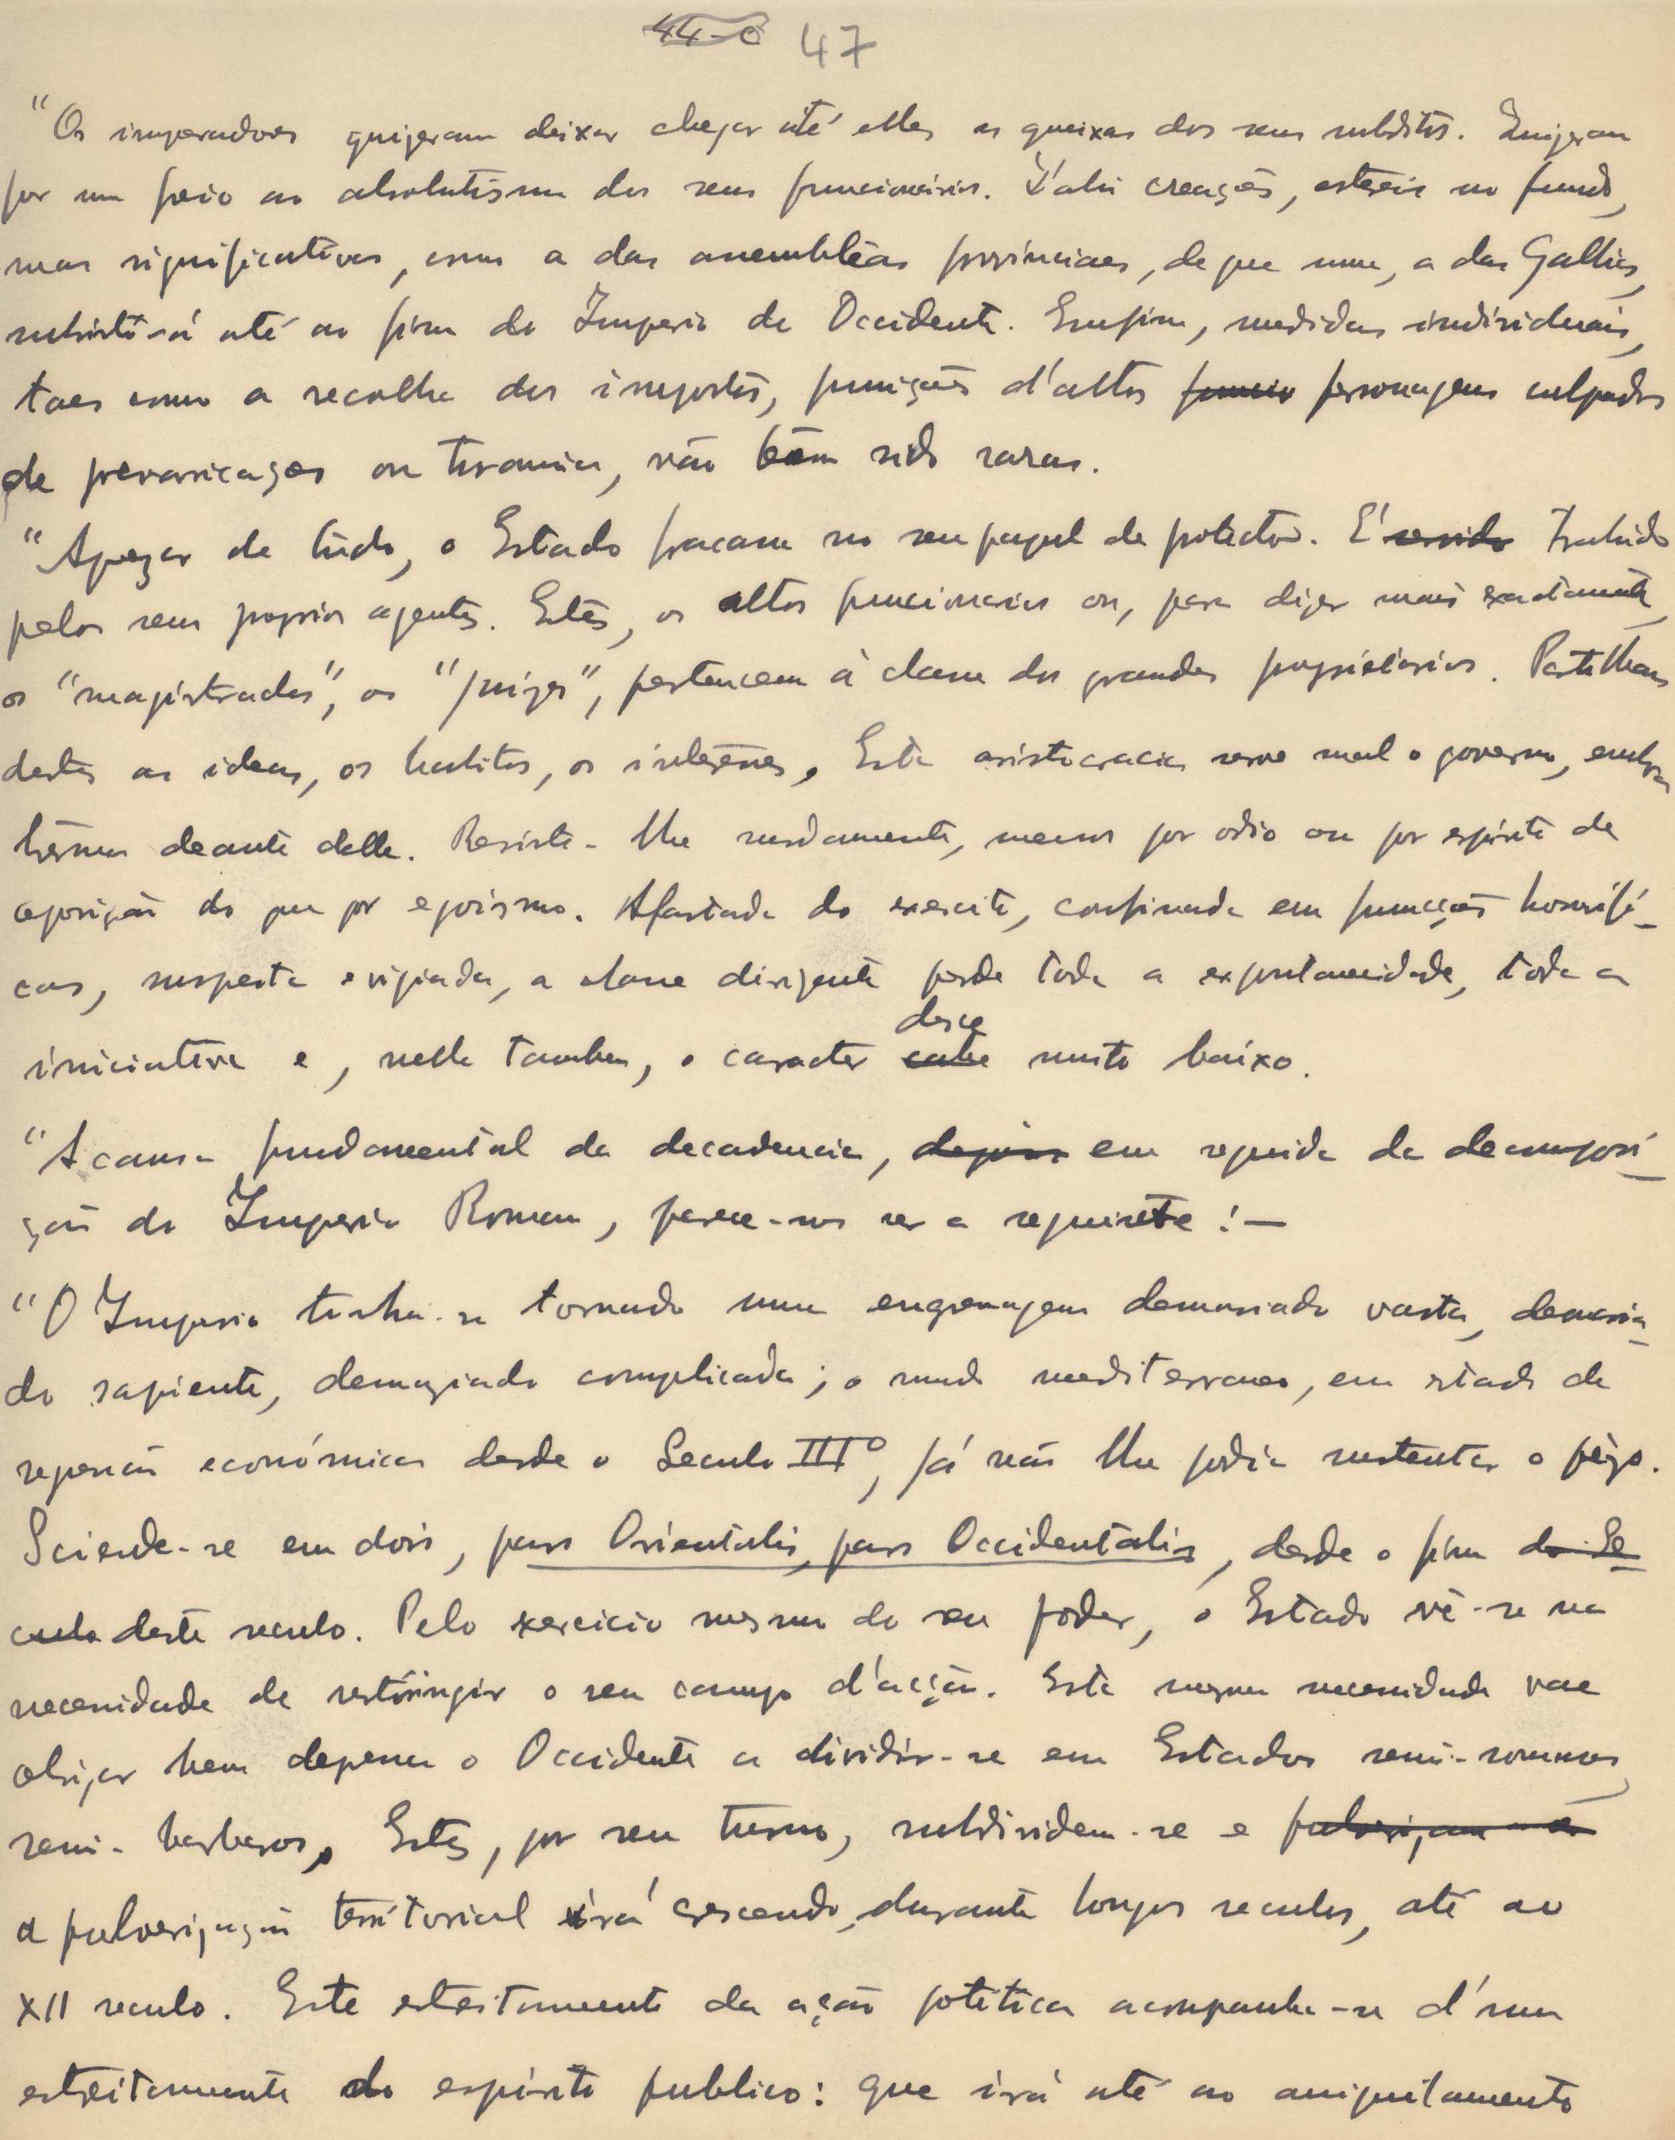 44-C 47
"Os imperadores quizeram deixar chegar até elles as queixas dos seus subditos. Quizeram
por um freio ao absolutismo dos seus funcionarios. D'ahi creações, estereis no fundo,
mas significativas, como a das assembléas provinciaes, de que uma, a das Gallias,
subsistirá até ao fim do Imperio do Occidente. Emfim, medidas individuais,
taes como a recolha dos impostos, punições d'altos funcio personagens culpados
de prevaricações ou tirania, não têm sido raras.
"Apezar de tudo, o Estado fracassa no seu papel de protector. E' servido trahido
pelos seus proprios agentes. Estes, os altos funcionarios ou, para dizer mais exactamente,
os "magistrados", os "juizes", pertencem á classe dos grandes proprietarios. Partilham
destes as ideas, os habitos, os interesses. Esta aristocracia serve mal o governo, embora
trema deante delle. Resiste-lhe surdamente, menos por odio ou por espirito de
opposição do que por egoismo. Afastada do exercito, confinada em funcções honorifi-
cas, suspeita e vigiada, a classe dirigente perde toda a espontaneidade, toda a
iniciativa e, nella tambem, o caracter cahe desce muito baixo.
"A causa fundamental da decadencia, depois em seguida da decomposi-
ção do Imperio Romano, parece-nos ser a seguinte:—
"O Imperio tinha-se tornado uma engrenagem demasiado vasta, demasia-
do sapiente, demaziado complicada; o mundo mediterraneo, em estado de
regressão económica desde o Seculo IIIº, já não lhe podia sustentar o pêzo.
Sciende-se em dois, pars Orientalis, pars Occidentalis, desde o fim do Se-
culo deste seculo. Pelo exercicio mesmo do seu poder, o Estado vê-se na
necessidade de restringir o seu campo d'acção. Esta mesma necessidade vae
obrigar bem depressa o Occidente a dividir-se em Estados semi-romanos,
semi-barbaros. Estes, por seu turno, subdividem-se e pulverizam-se
a pulverização territorial irá crescendo, durante longos seculos, até ao
XII seculo. Este estreitamento da ação política acompanha-se d'um
estreitamento do espirito publico: que irá até ao aniquilamento